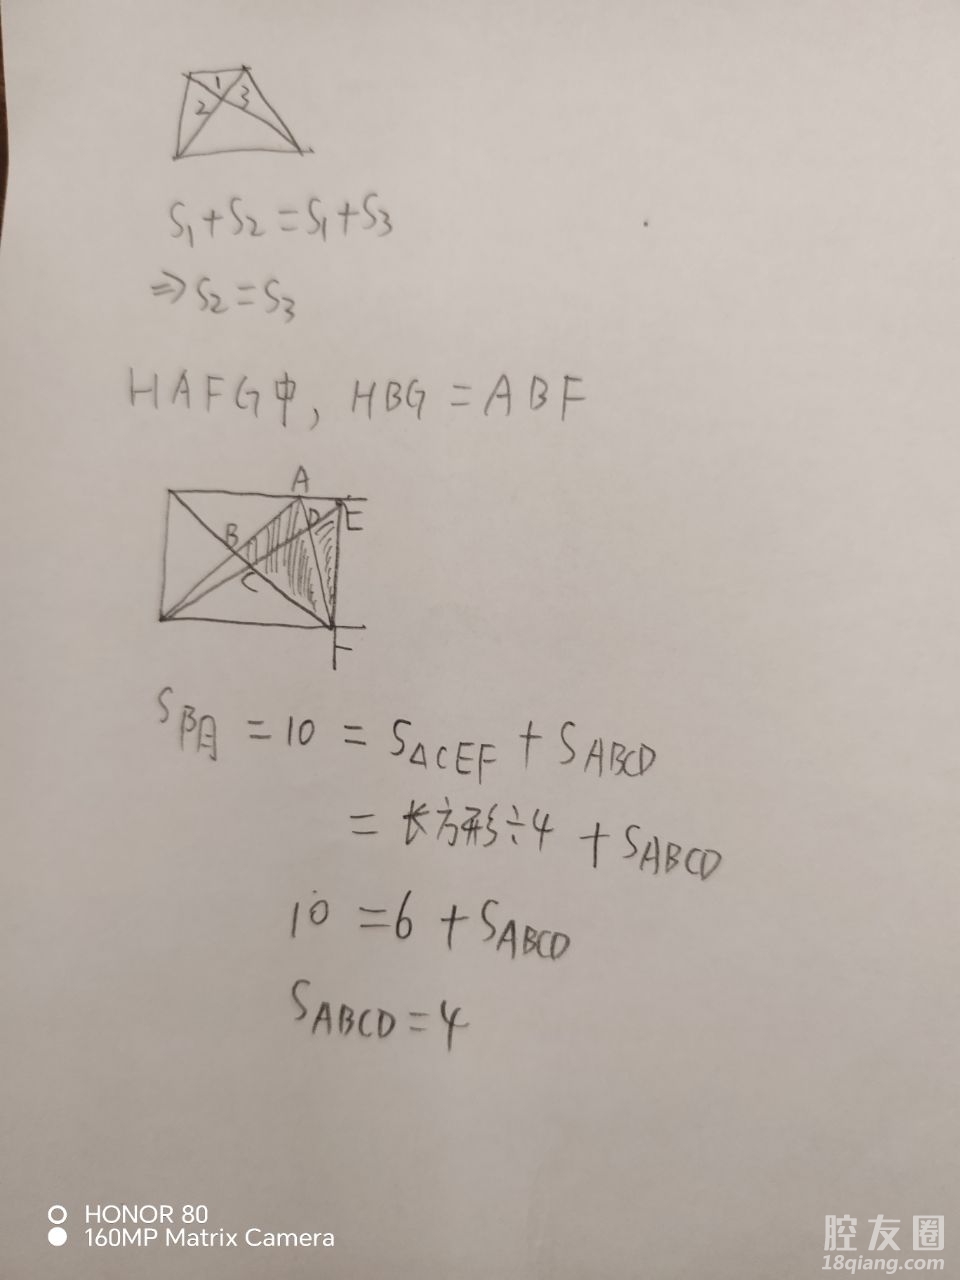 1
2 3
S₁+S₂=S₁+S₃
⇒S₂=S₃
HAFG中, HBG=ABF
A
B D E
C
F
S阴=10=S△CEF+SABCD
=长方形÷4+SABCD
10=6+SABCD
SABCD=4
HONOR 80
160MP Matrix Camera
腔友圈
18qiang.com